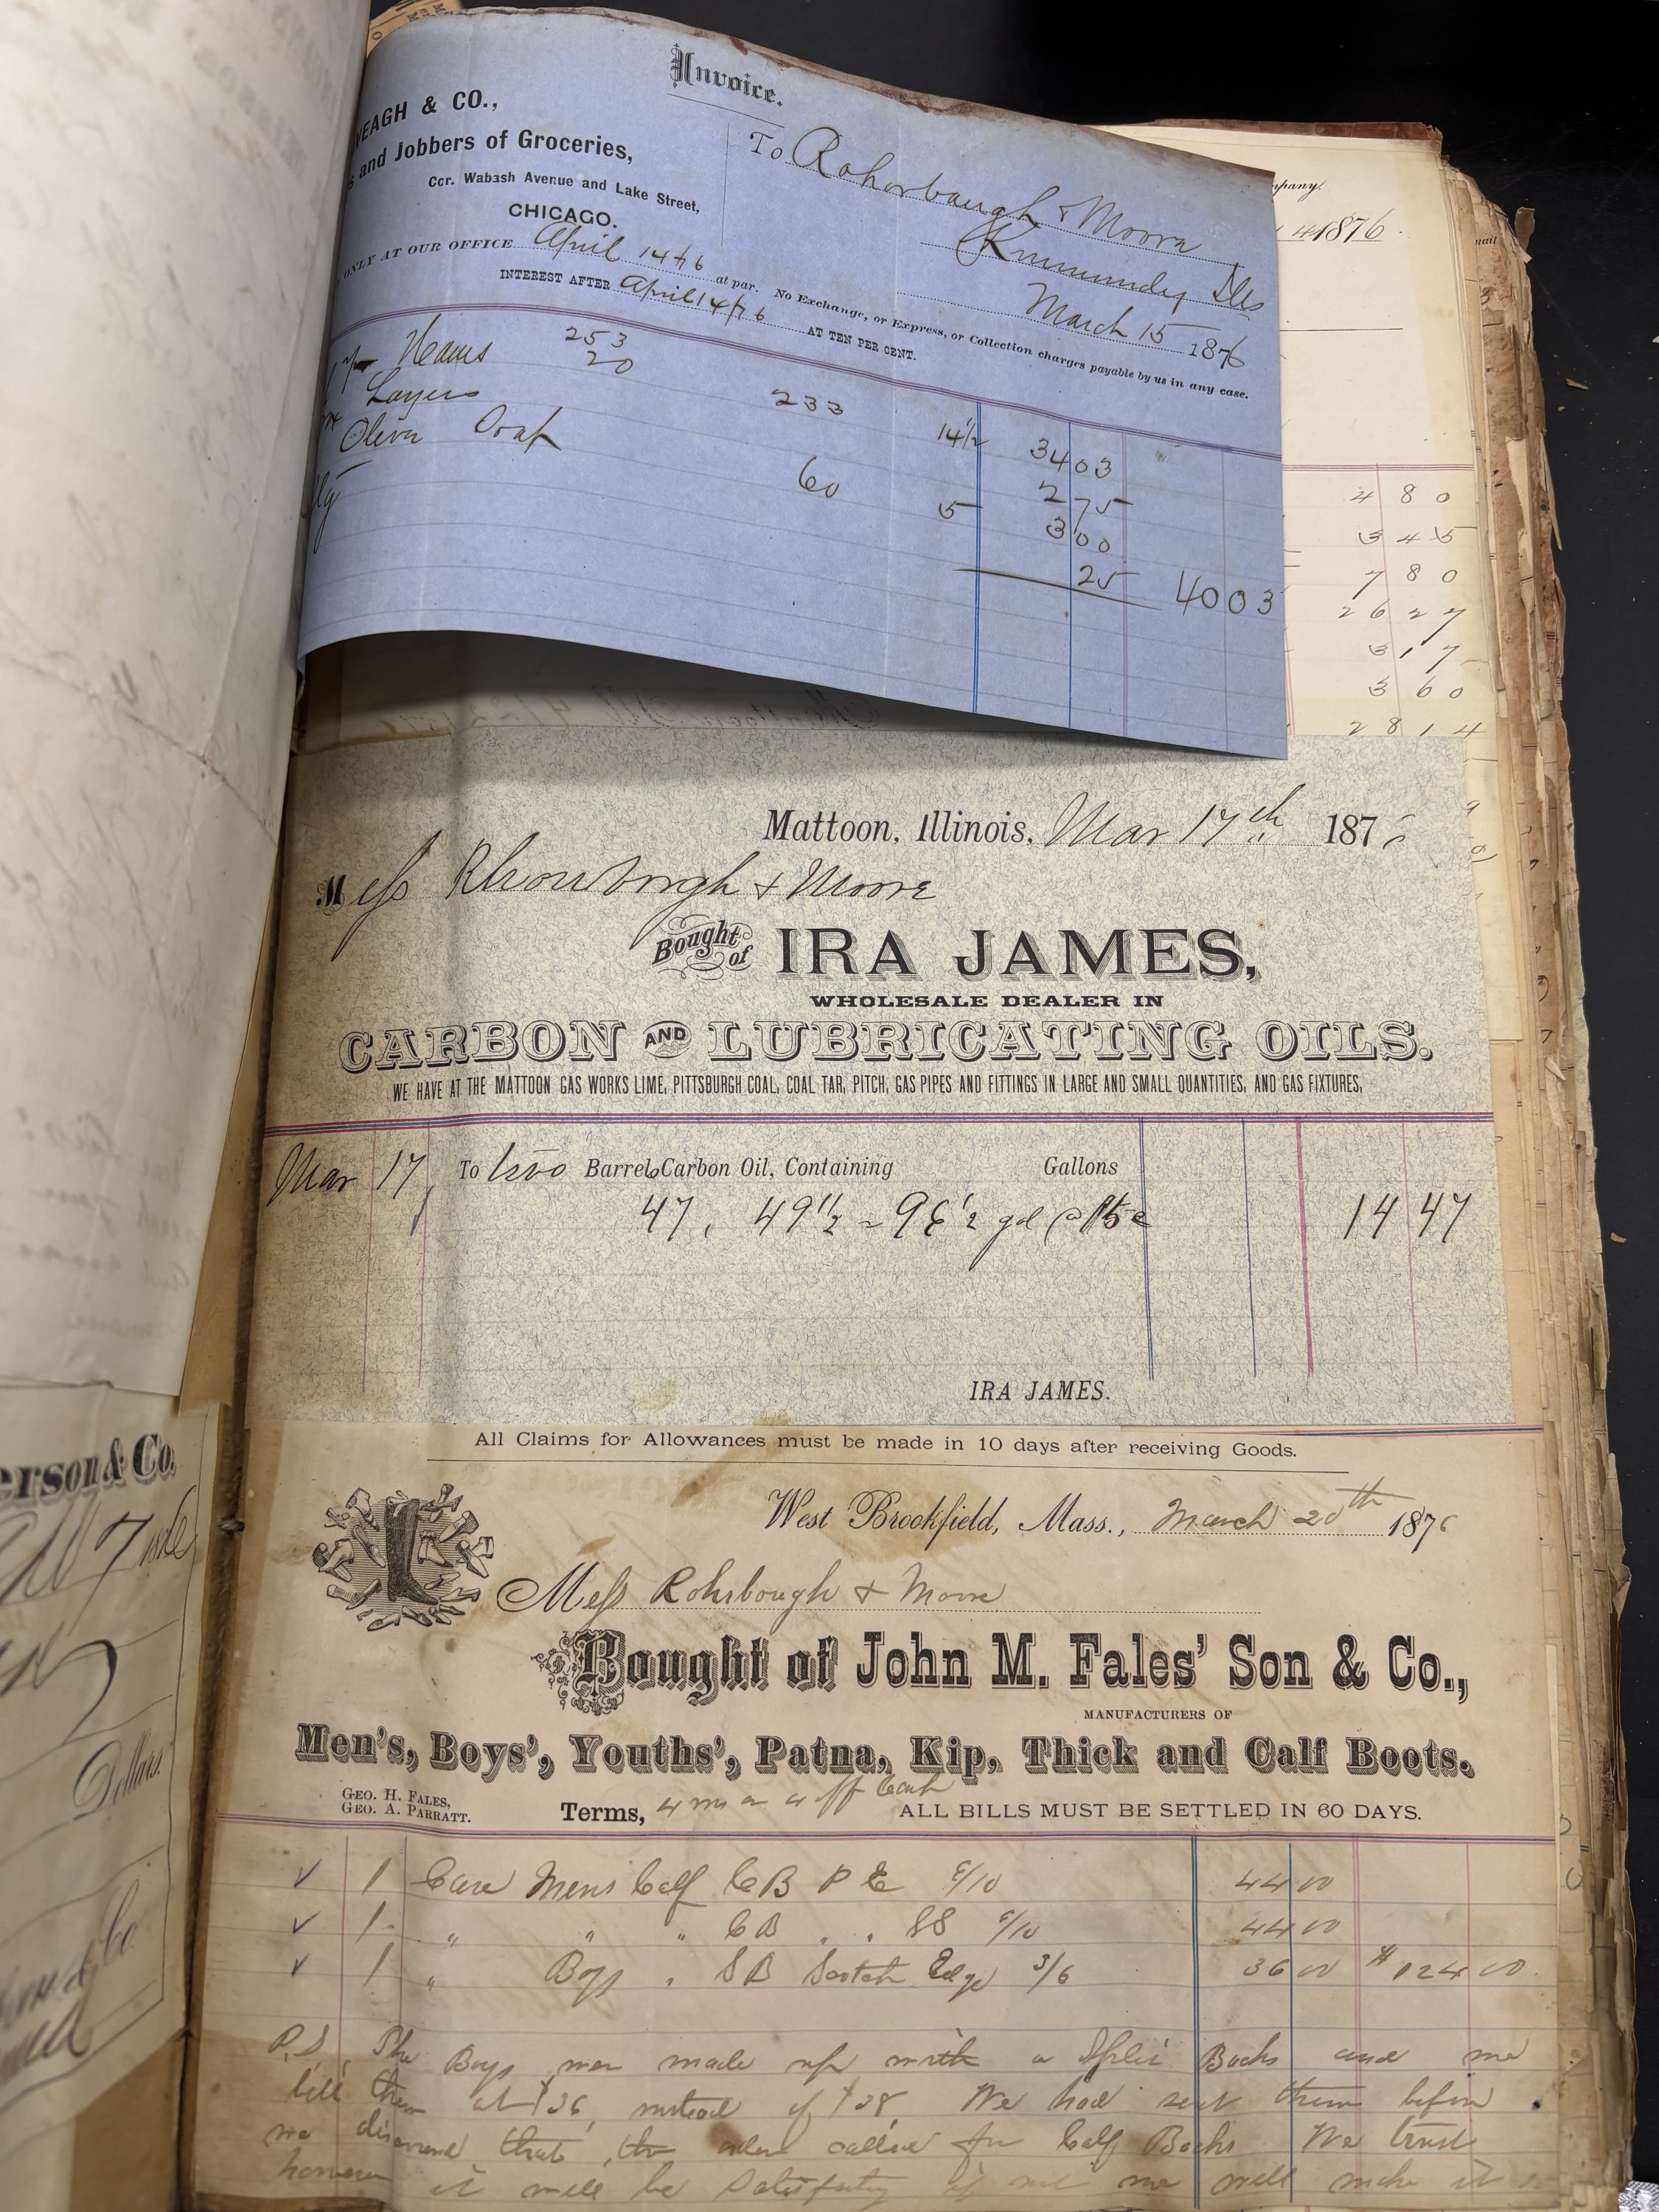 Invoice.
VEAGH & CO.,
and Jobbers of Groceries,
Cor. Wabash Avenue and Lake Street,
CHICAGO.
To Rohorbaugh & Moore
Kinmundy Ills
March 15 1876
ONLY AT OUR OFFICE April 14/76 at par. No Exchange, or Express, or Collection charges payable by us in any case.
INTEREST AFTER April 14/76 AT TEN PER CENT.
Hams 253
20
233 14½ 34 03
Layers 2 75
Olive Soap 60 5 3 00
25 40 03
mpany.
1876
4 80
3 45
7 80
26 27
3 17
3 60
28 14
Mattoon, Illinois, Mar 17th 187
Mess Rhorborgh & Moore
Bought of IRA JAMES,
WHOLESALE DEALER IN
CARBON AND LUBRICATING OILS.
WE HAVE AT THE MATTOON GAS WORKS LIME, PITTSBURGH COAL, COAL TAR, PITCH, GAS PIPES AND FITTINGS IN LARGE AND SMALL QUANTITIES, AND GAS FIXTURES,
Mar 17 To two Barrels Carbon Oil, Containing Gallons
47, 49½ = 96½ gal @ 15c 14 47
IRA JAMES.
All Claims for Allowances must be made in 10 days after receiving Goods.
West Brookfield, Mass., March 20th 1876
Mess Rohrbough & Moore
Bought of John M. Fales' Son & Co.,
MANUFACTURERS OF
Men's, Boys', Youths', Patna, Kip, Thick and Calf Boots.
GEO. H. FALES,
GEO. A. PARRATT.
Terms, 4 ms or 4 off Cash ALL BILLS MUST BE SETTLED IN 60 DAYS.
1 Case Mens Calf C B P E 6/10 44 00
1 " " " C B " " SS 6/10 44 00
1 " Boys " S B Scotch Edge 3/6 36 00 $124 00
P.S. The Boys were made up with a Split Backs and we
bill them at $36, instead of $38. We had sent them before
we discovered that the order called for Calf Backs We trust
however it will be satisfactory if not we will make it
erson & Co.
Dollars.